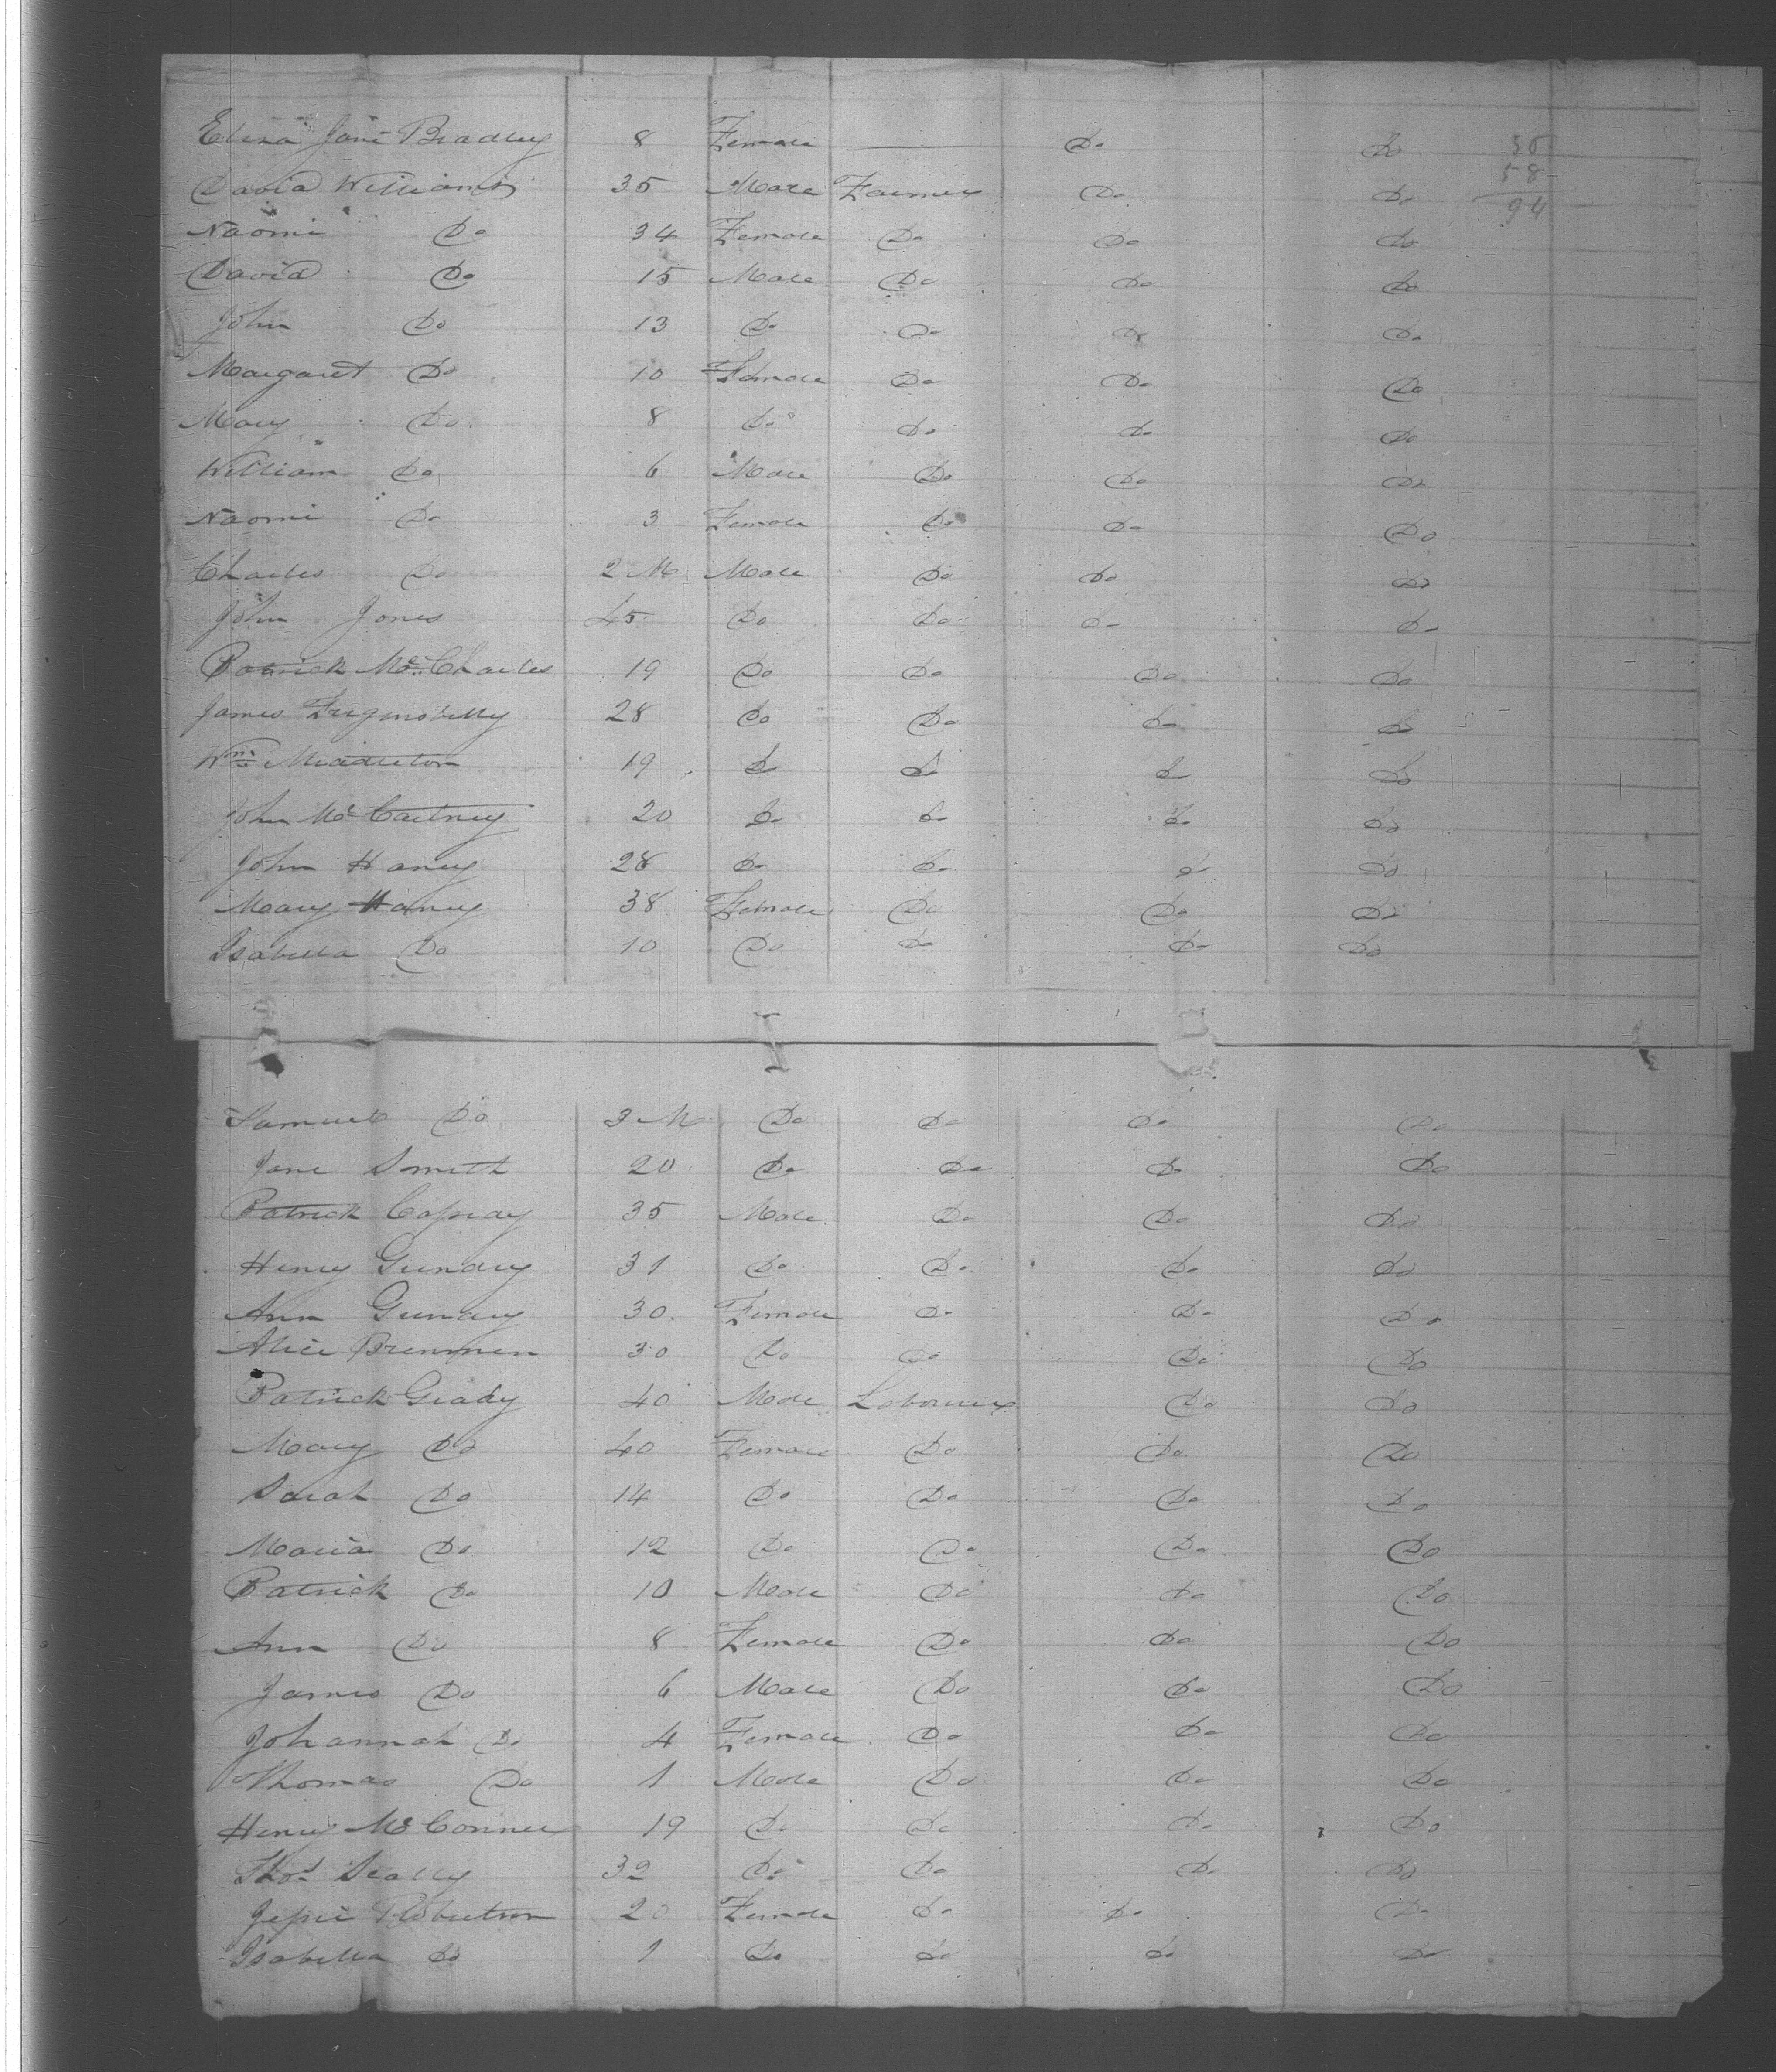 Eliza Jane Bradley 8 Female — Do Do 36
David Williams 35 Male Farmer Do Do 58
94
Naomi Do 34 Female Do Do Do
David Do 15 Male Do Do Do
John Do 13 Do Do Do Do
Margaret Do 10 Female Do Do Do
Mary Do 8 Do Do Do Do
William Do 6 Male Do Do Do
Naomi Do 3 Female Do Do Do
Charles Do 2 M Male Do Do Do
John Jones 45 Do Do Do Do
Patrick McCharles 19 Do Do Do Do
James 28 Do Do Do Do
Wm Middleton 19 Do Do Do Do
John McCartney 20 Do Do Do Do
John Haney 28 Do Do Do Do
Mary Haney 38 Female Do Do Do
Isabella Do 10 Do Do Do Do
Samuel Do 3 M Do Do Do Do
Jane Smith 20 Do Do Do Do
Patrick Cassidy 35 Male Do Do Do
Henry Grundy 31 Do Do Do Do
Ann Grundy 30 Female Do Do Do
Alice Brennnen 30 Do Do Do Do
Patrick Grady 40 Male Labourer Do Do
Mary Do 40 Female Do Do Do
Sarah Do 14 Do Do Do Do
Maria Do 12 Do Do Do Do
Patrick Do 10 Male Do Do Do
Ann Do 8 Female Do Do Do
James Do 6 Male Do Do Do
Johannah Do 4 Female Do Do Do
Thomas Do 1 Male Do Do Do
Henry McConner 19 Do Do Do Do
Thos Scally 32 Do Do Do Do
Jessie Robertson 20 Female Do Do Do
Isabella Do 1 Do Do Do Do